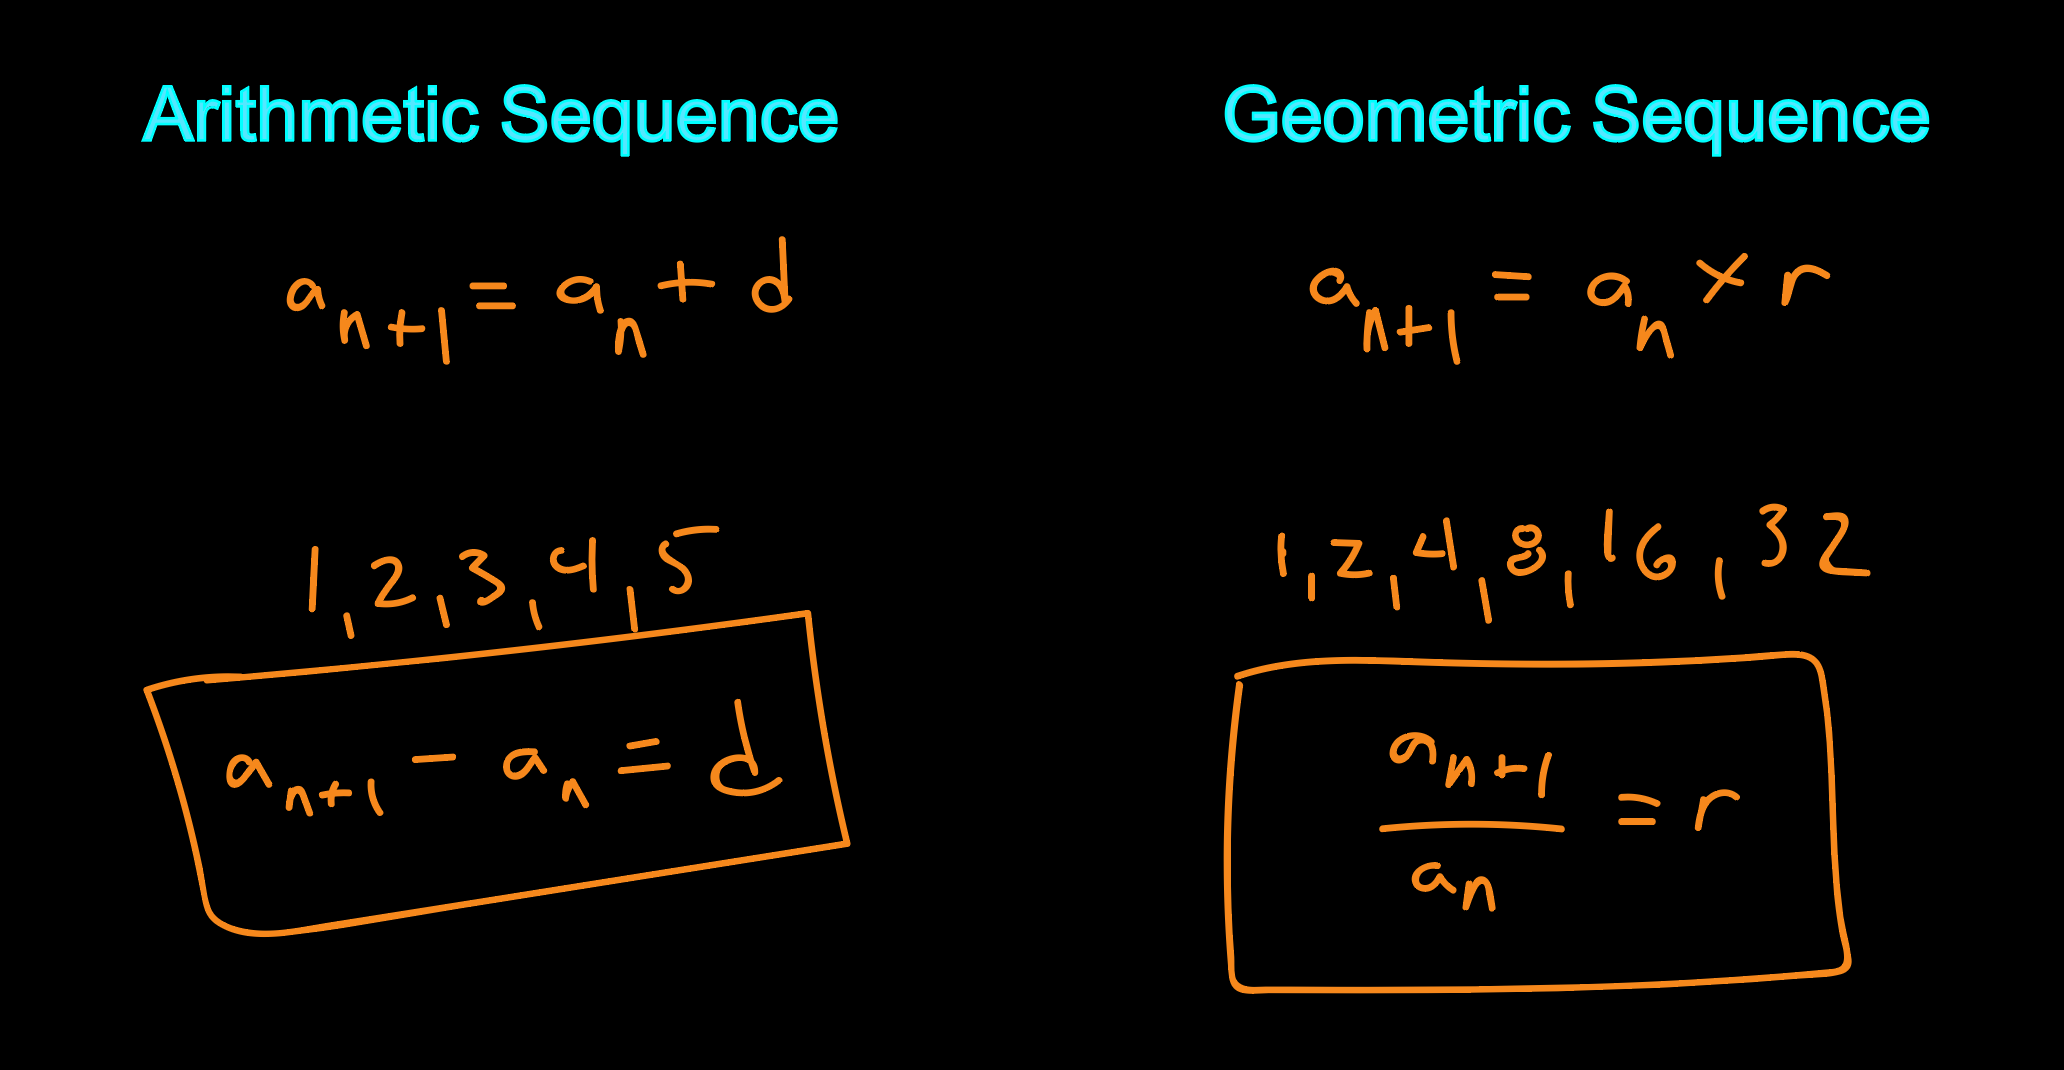 Arithmetic Sequence
aₙ₊₁ = aₙ + d
1, 2, 3, 4, 5
aₙ₊₁ - aₙ = d
Geometric Sequence
aₙ₊₁ = aₙ × r
1, 2, 4, 8, 16, 32
aₙ₊₁
aₙ = r